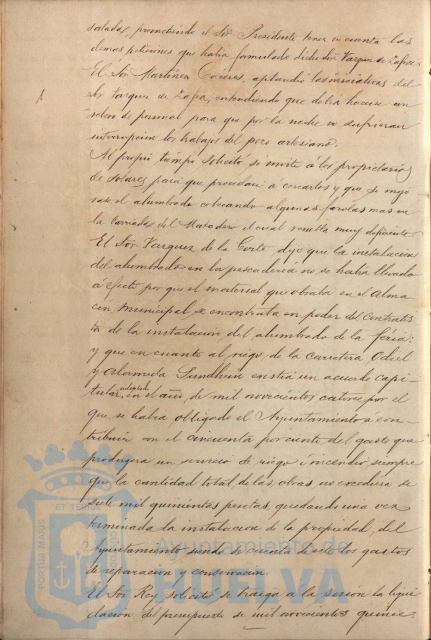 saladas, prometiendo el Sor Presidente tener en cuenta las
demas peticiones que habia formulado dicho Sor Vazquez de Zafra.
El Sor Martinez aplaudió las iniciativas del
Sor Vazquez de Zafra, entendiendo que debia hacerse un
de personal para que por la noche no sufrieran
interrupcion los trabajos del pozo artesiano.
Al propio tiempo solicitó se invite á los propietarios
de solares para que procedan á cercarlos y que se mejo
rase el alumbrado colocando algunas farolas mas en
la barriada del Matadero el cual resulta muy deficiente.
El Sor Vazquez de la Corte dijo que la instalacion
del alumbrado en la pescaderia no se habia llevado
á efecto por que el material que obraba en el Alma
cen Municipal se encontraba en poder del contratis
ta de la instalacion del alumbrado de la feria;
y que en cuanto al riego de la Carretera Odiel
y Alameda Sundheim existia un acuerdo capi
tular, adoptado en el año de mil novecientos catorce por el
que se habia obligado el Ayuntamiento á con
tribuir con el cincuenta por ciento del gasto que
produjera un servicio de riego é incendio siempre
que la cantidad total de las obras no excediera de
siete mil quinientas pesetas, quedando una vez
terminada la instalacion de la propiedad del
Ayuntamiento siendo de cuenta de este los gastos
de reparacion y conservacion.
El Sor Rey solicitó se traiga á la sesion la liqui
dacion del presupuesto de mil novecientos quince.
PORTUS MARIS ET TERRAE
Ayuntamiento de
HUELVA